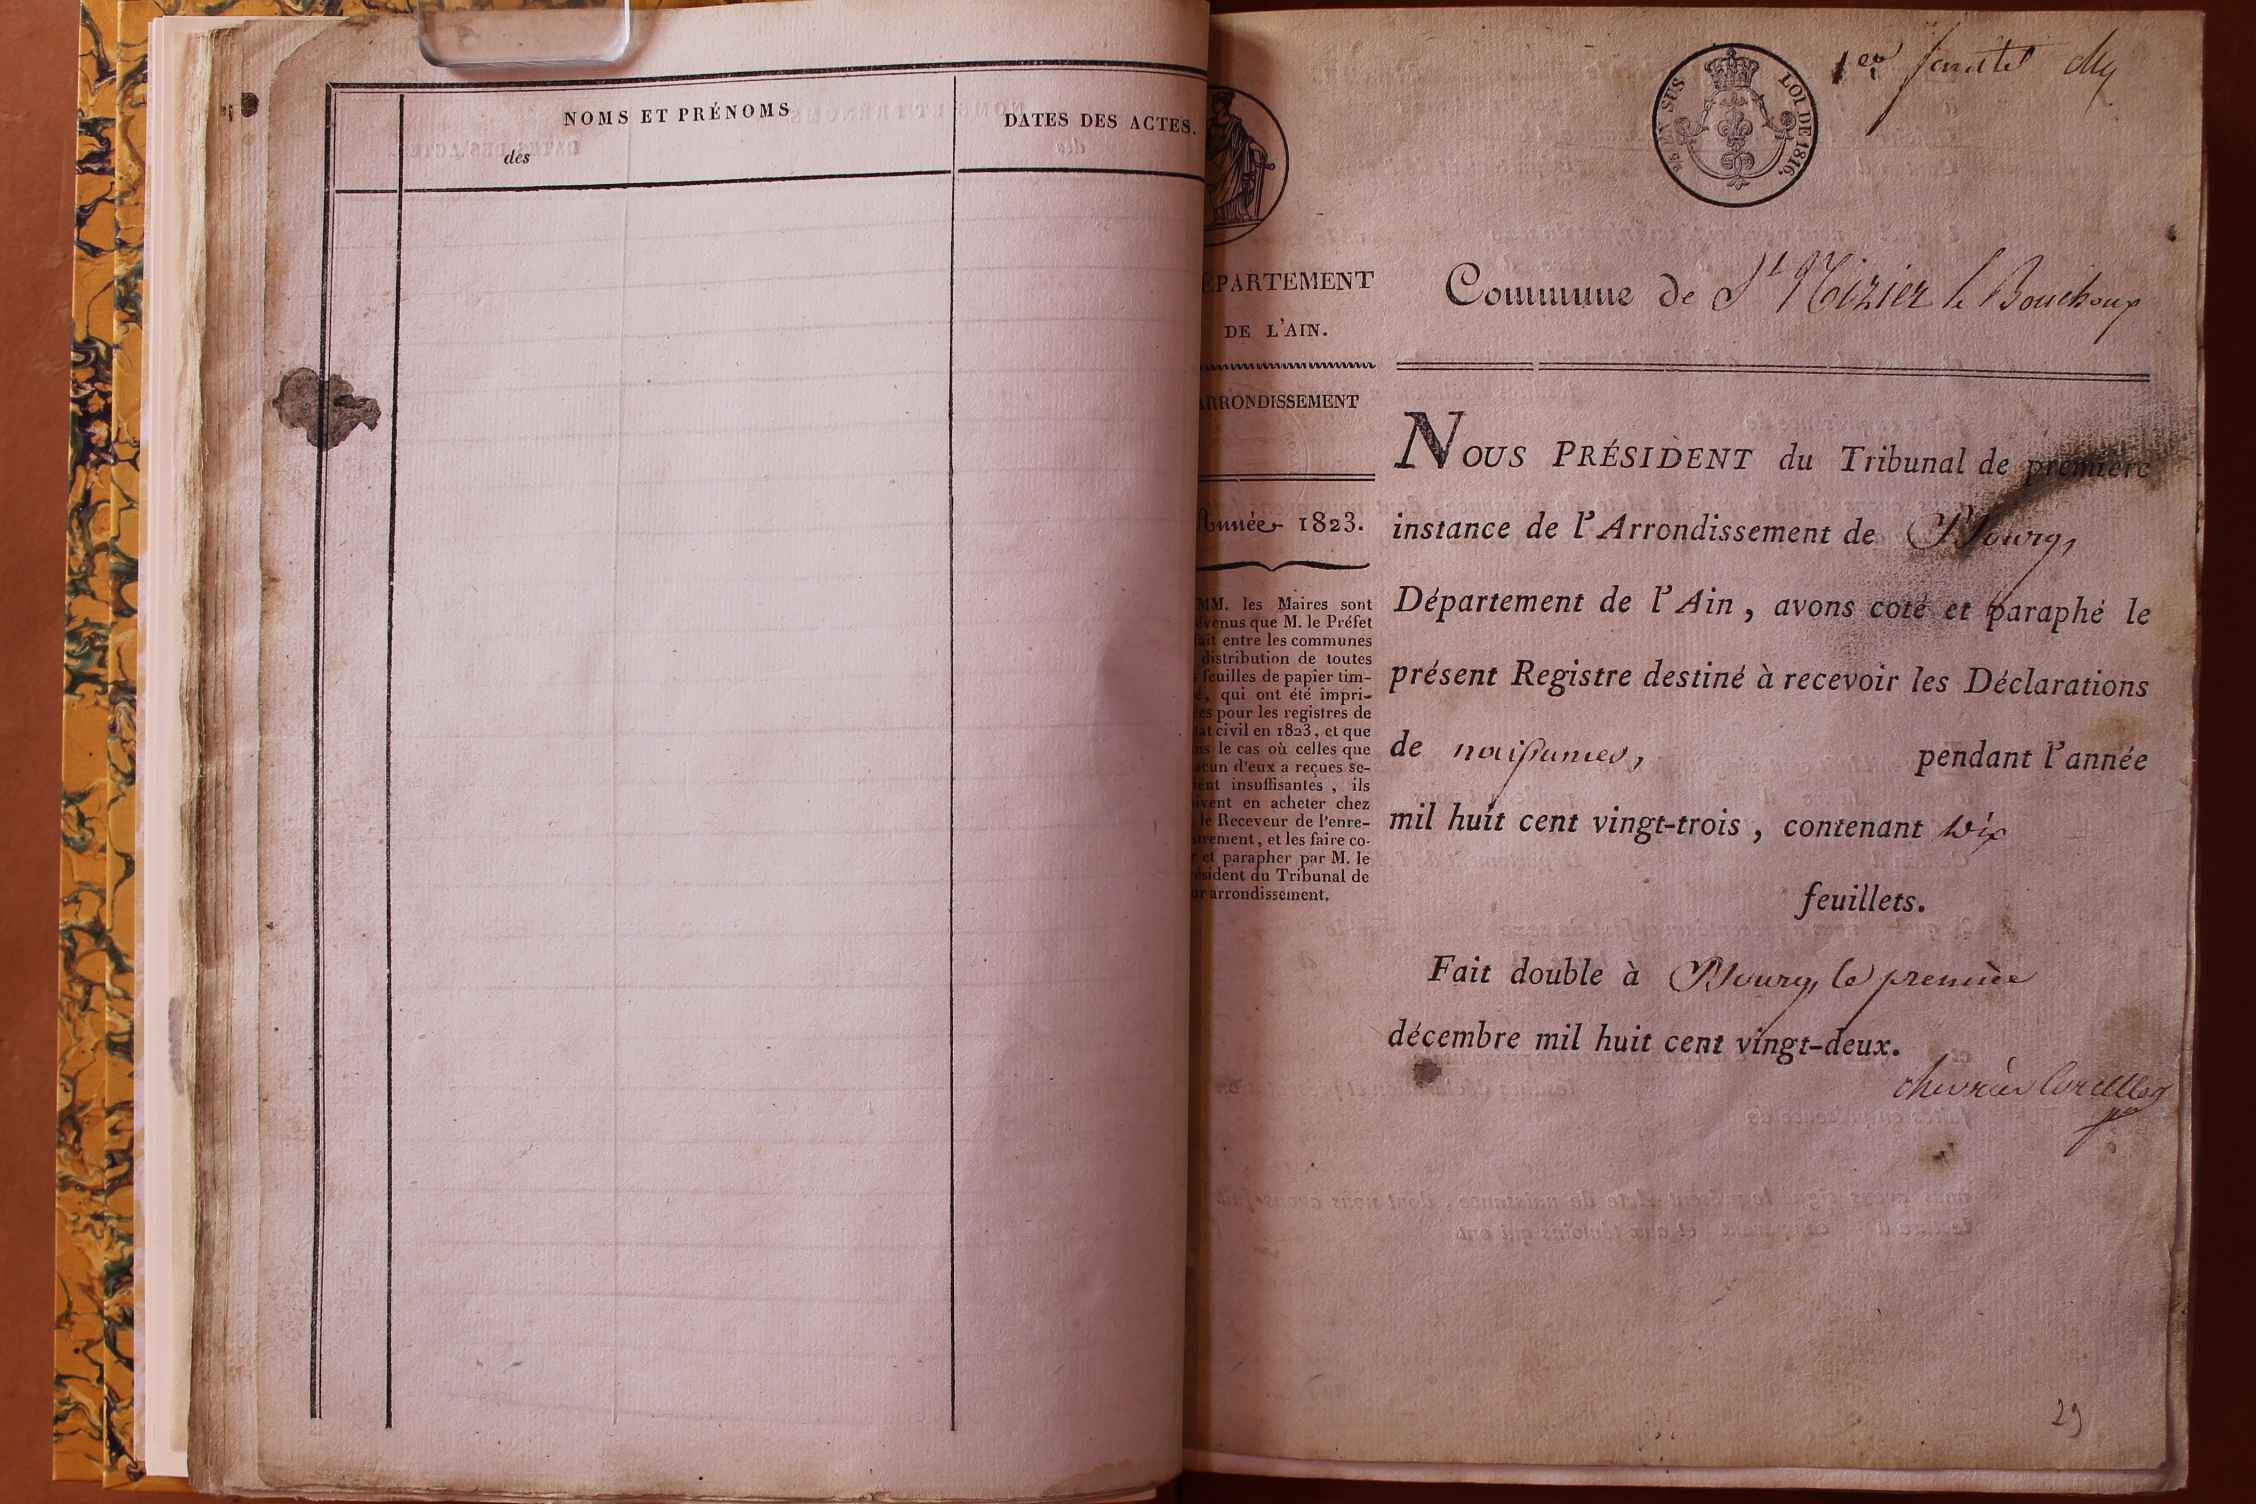 NOMS ET PRÉNOMS
des
DATES DES ACTES.
EN SUS
LOI DE 1816.
1er feuillet
ÉPARTEMENT
DE L'AIN.
ARRONDISSEMENT
Année 1823.
MM. les Maires sont
évenus que M. le Préfet
fait entre les communes
distribution de toutes
feuilles de papier tim-
é, qui ont été impri-
es pour les registres de
tat civil en 1823, et que
ns le cas où celles que
acun d'eux a reçues se-
ient insuffisantes, ils
ivent en acheter chez
le Receveur de l'enre-
strement, et les faire co-
r et parapher par M. le
ésident du Tribunal de
ur arrondissement.
Commune de St Nizier le Bouchoux
NOUS PRÉSIDENT du Tribunal de première
instance de l'Arrondissement de Bourg,
Département de l'Ain, avons coté et paraphé le
présent Registre destiné à recevoir les Déclarations
de naissances, pendant l'année
mil huit cent vingt-trois, contenant dix
feuillets.
Fait double à Bourg, le premier
décembre mil huit cent vingt-deux.
chevrier Corcelles
29